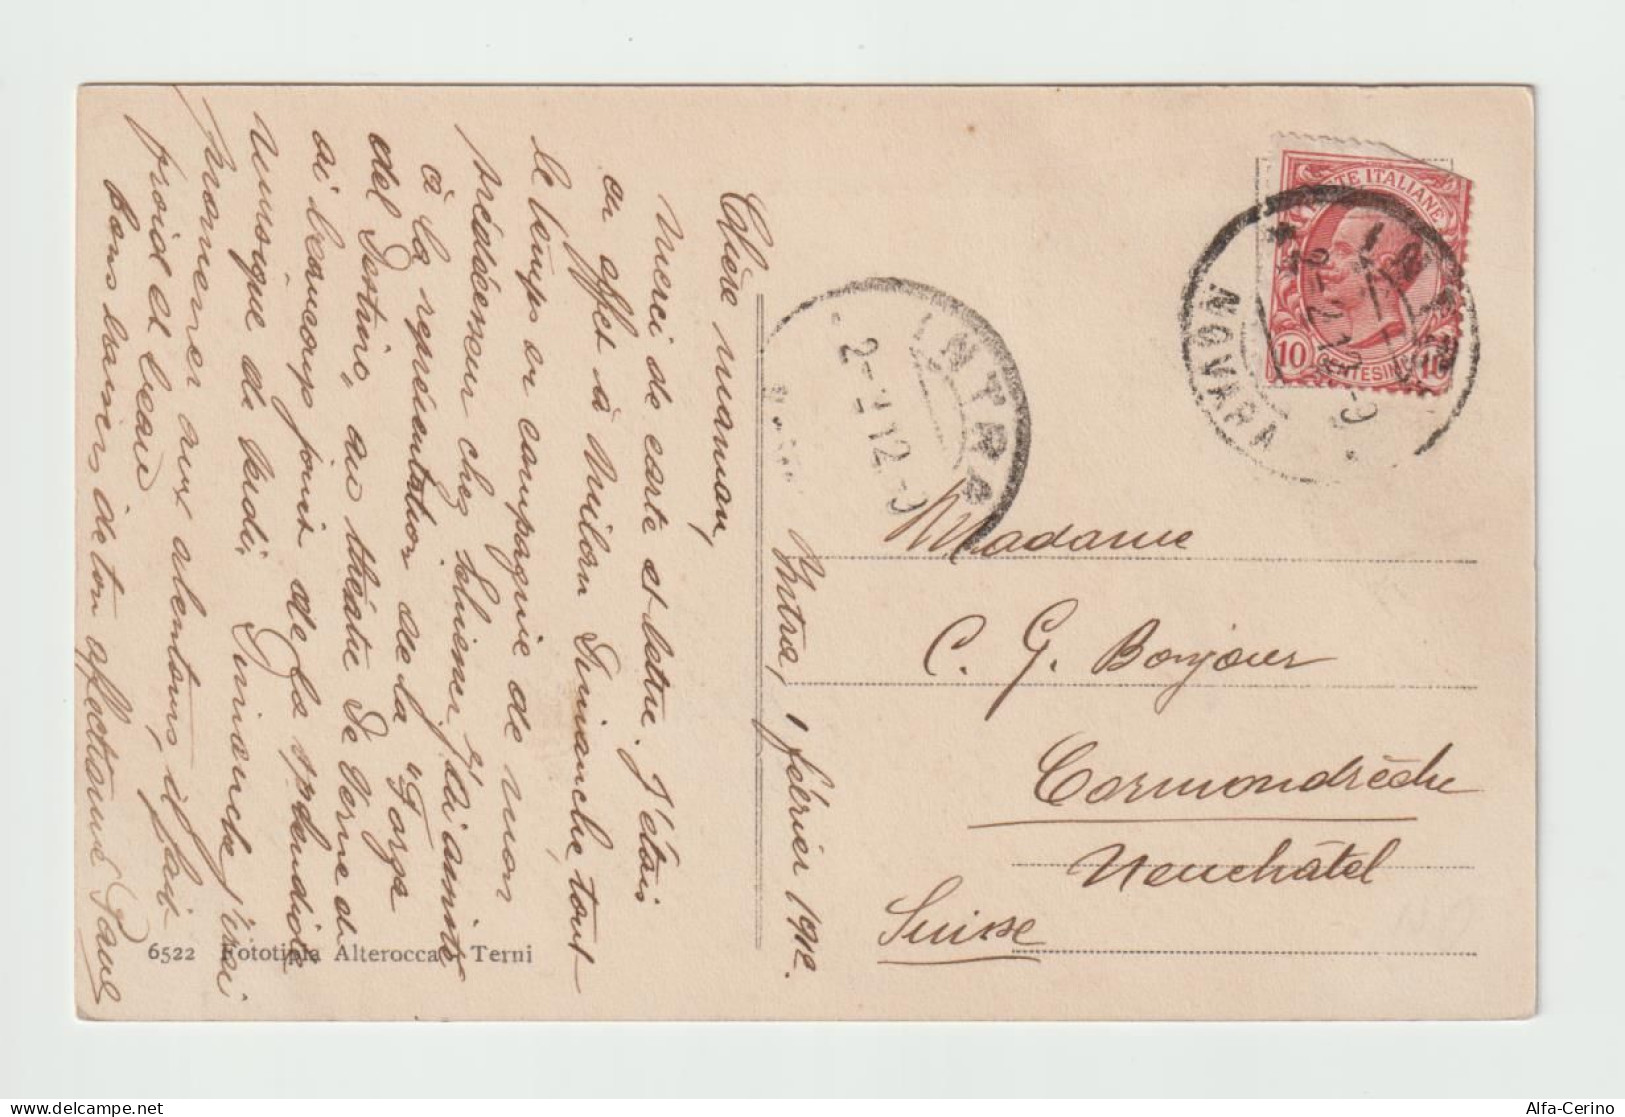 Intra, 1 février 1912.
Chère maman,
Merci de carte et lettre. J'étais
en effet à Milan Dimanche, tout
le temps en compagnie de mon
prédécesseur chez Schiener, j'ai assisté
à la représentation de la "Forza
del Destino" au théâtre De Verme et
ai beaucoup joui de la splendide
musique de Verdi. Dimanche j'irai
promener aux alentours, il fait
froid et beau
bons baisers de ton affectionné Paul
6522 Fototipia Alterocca - Terni
INTRA
2-2 12-9
POSTE ITALIANE
10 CENTESIMI 10
INTRA
2-2 12-9
NOVARA
Madame
C. G. Bonjour
Cormondrèche
Neuchâtel
Suisse
Alfa-Cerino